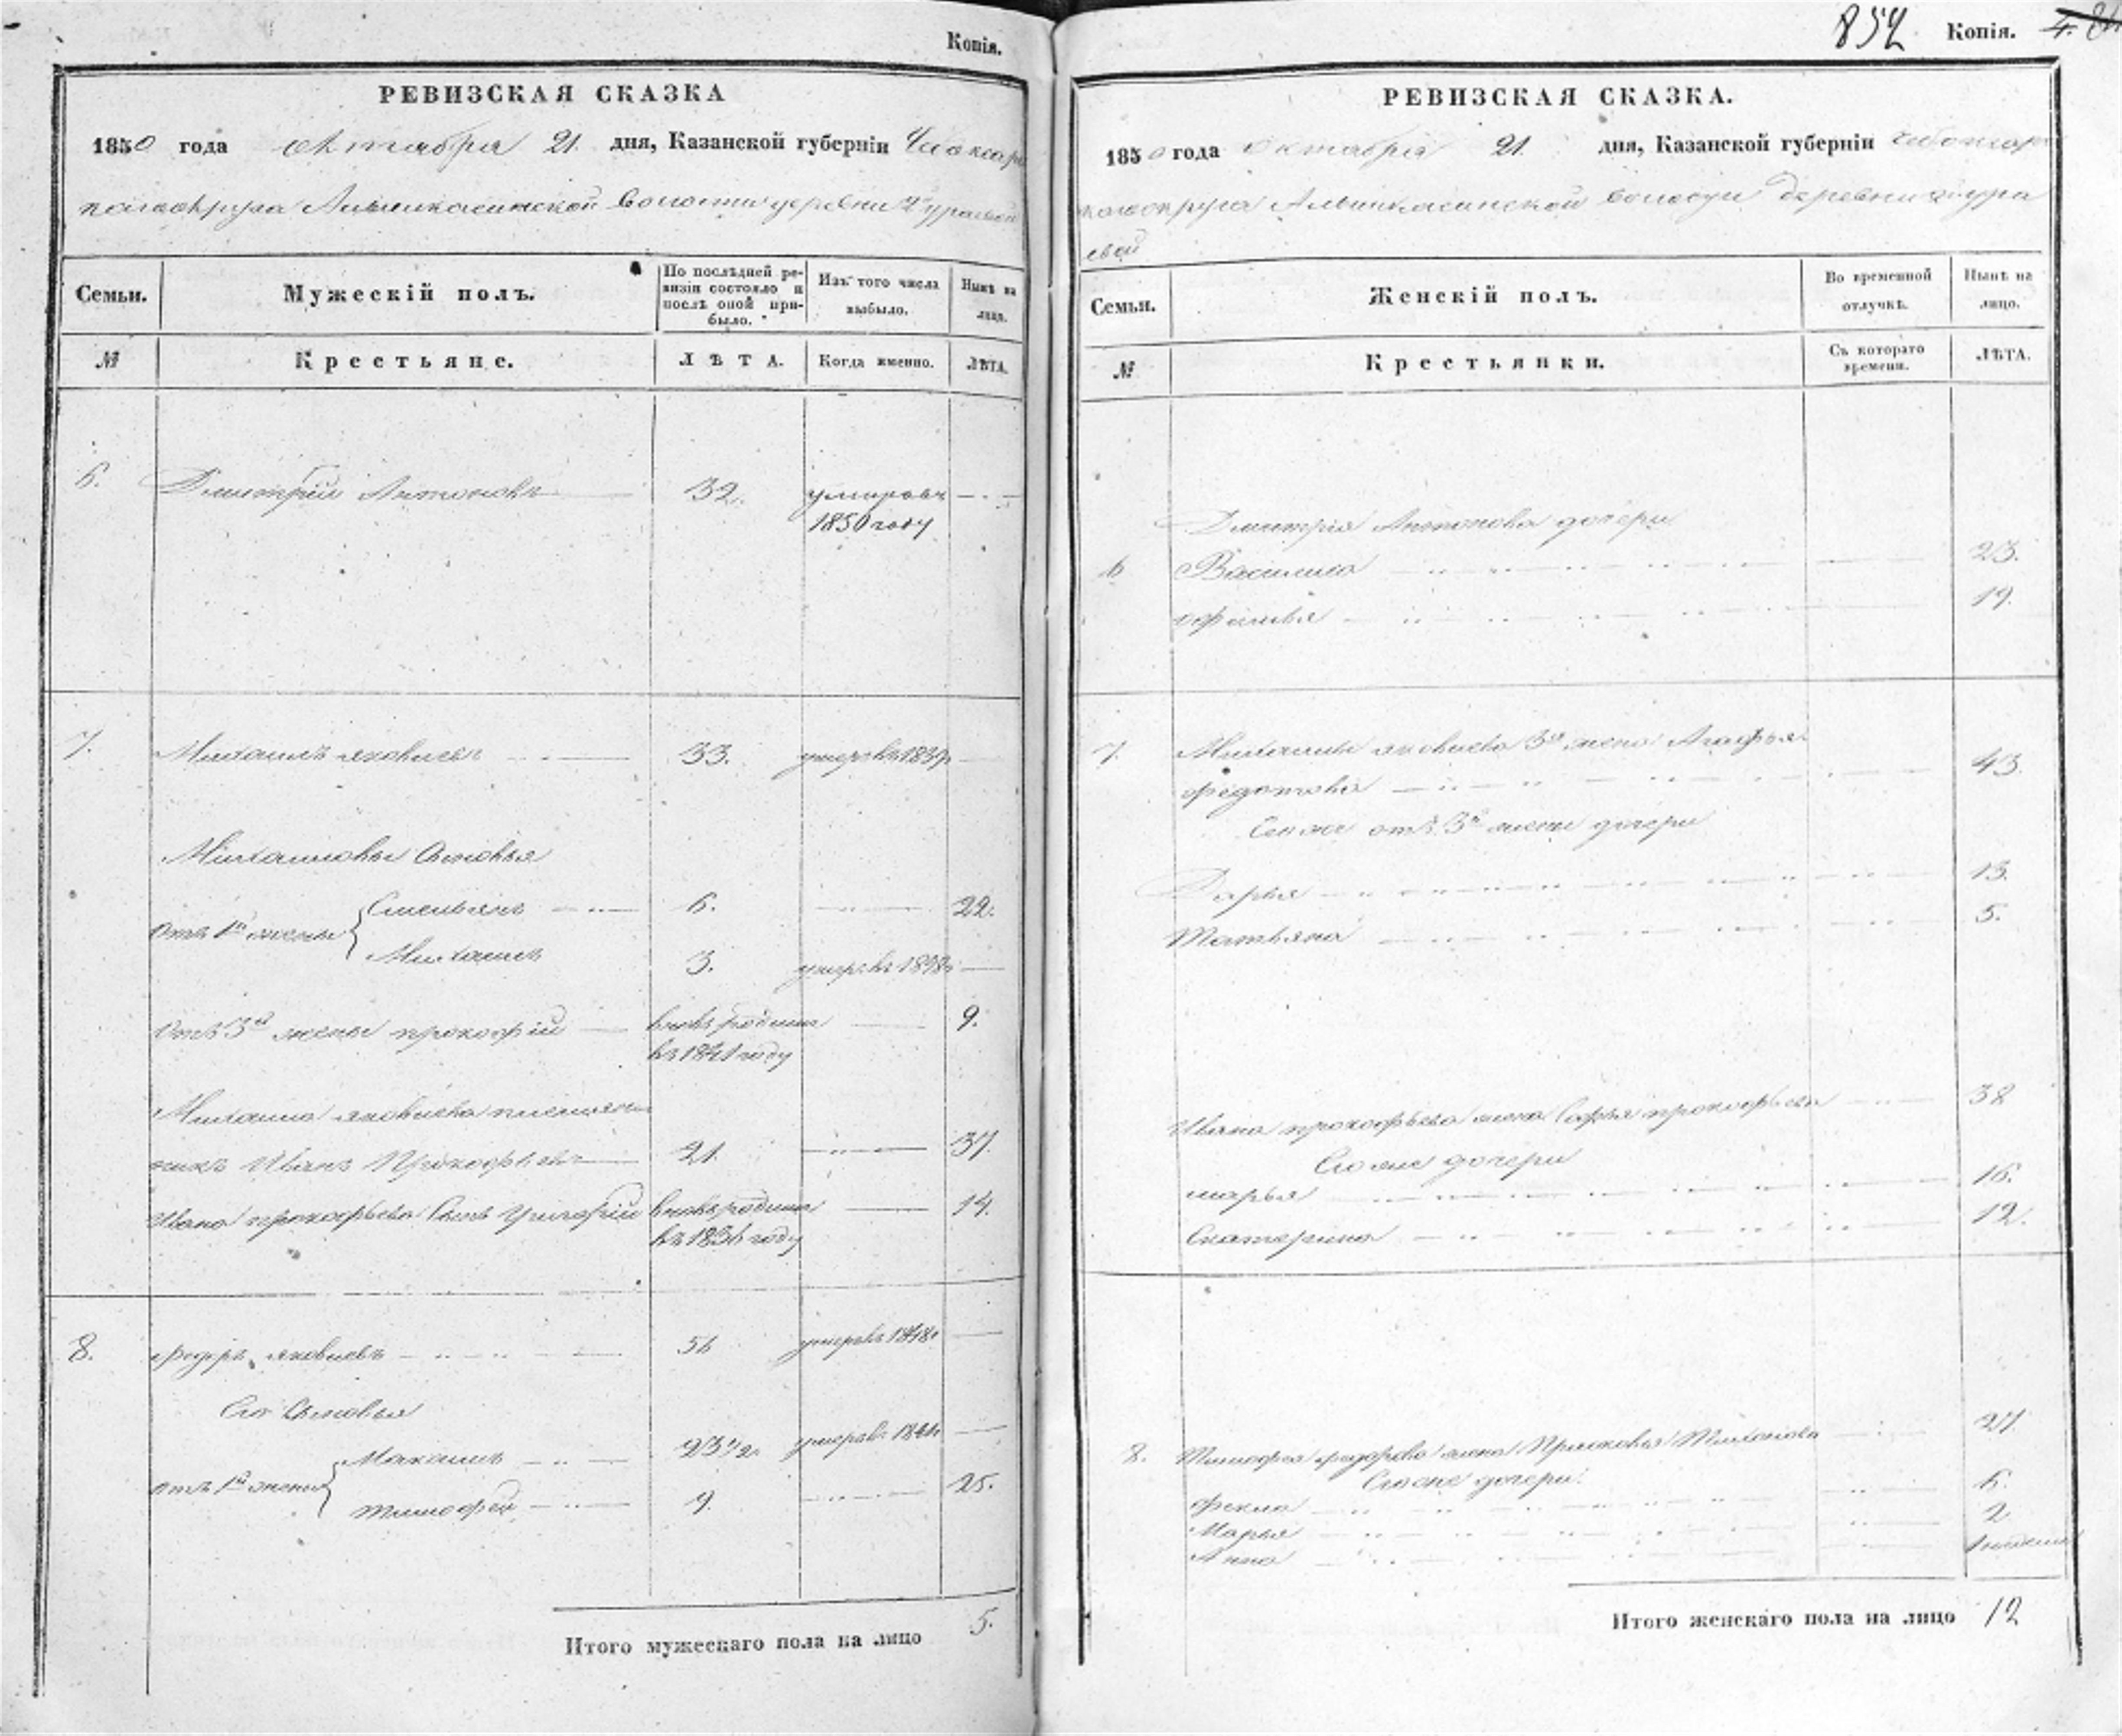 Копія.
РЕВИЗСКАЯ СКАЗКА
1850 года октября 21 дня, Казанской губерніи Чебоксар
скаго округа Алымкасинской волости деревни
Семьи.
Мужескій полъ.
По послѣдней ре-
визіи состояло и
послѣ оной при-
было.
Изъ того числа
выбыло.
Нынѣ на
лицо.
№
Крестьяне.
ЛѢТА.
Когда именно.
ЛѢТА.
6. Дмитрій Антоновъ 32. умеръ въ
1850 году
7. Михаилъ яковлевъ 33. умеръ въ 1839
Михаиловы Сыновья
отъ 1й жены
Степанъ 6. 22.
Михаилъ 3. умеръ въ
отъ 3й жены прокофій вновь рожден 9.
въ 1841 году
Михаила яковлева племян
никъ Иванъ Прокофьевъ 21. 37.
Ивана прокофьева Сынъ Григорій вновь рожден 14.
въ 1836 году
8. федоръ яковлевъ умеръ въ 1848
Его Сыновья
отъ 1й жены
23 1/2 умеръ въ
тимофей 9. 25.
Итого мужескаго пола на лицо 5.
852 Копія.
РЕВИЗСКАЯ СКАЗКА.
1850 года Октября 21. дня, Казанской губерніи Чебоксар
скаго округа Алымкасинской волости деревни
евой
Семьи.
Женскій полъ.
Во временной
отлучкѣ.
Нынѣ на
лицо.
№
Крестьянки.
Съ котораго
времени.
ЛѢТА.
Дмитрія Антонова дочери
6 Василиса 23.
офимья 19.
7. Михаила яковлева 3я жена Агафья
федотова 43.
Его же отъ 3й жены дочери
Дарья 13.
Татьяна 5.
Ивана прокофьева жена Софья прокофьева 38
Его же дочери
марья 16.
Екатерина 12.
8. Тимофея федорова жена Прасковья 27
Его же дочери
фекла 6.
Марья 2
Анна 1 недели
Итого женскаго пола на лицо 12